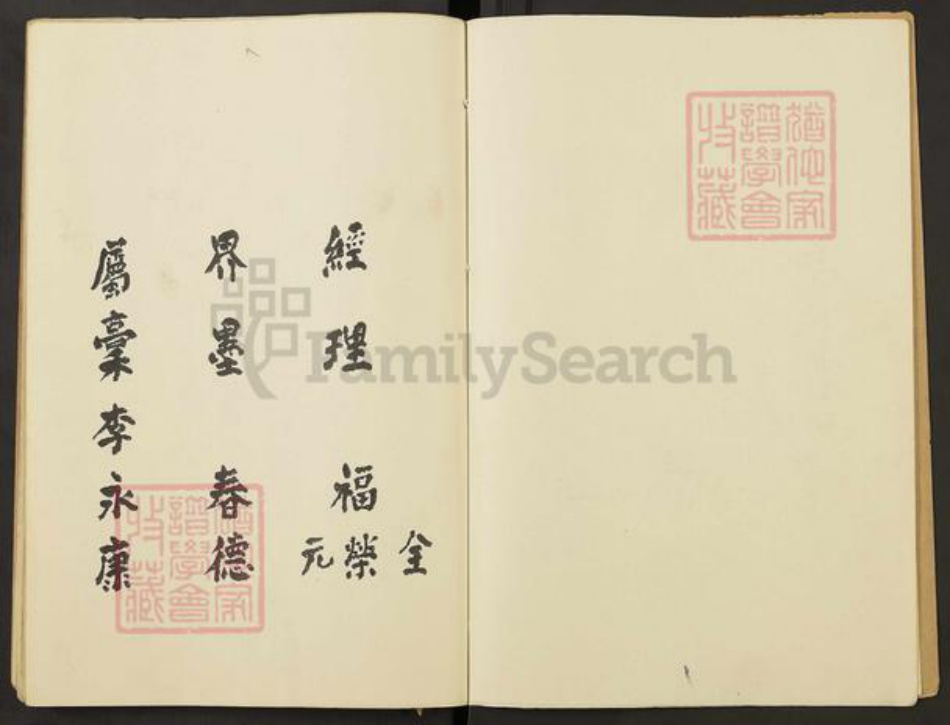 猶他家
譜學會
收藏
經理 福全榮元
界墨 春德
屬稾 李永康
猶他家
譜學會
收藏
FamilySearch